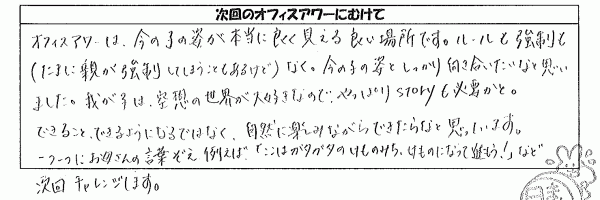 次回のオフィスアワーにむけて
オフィスアワーは、今の子の姿が本当に良く見える良い場所です。ルールも強制も
(たまに親が強制してしまうこともあるけど)なく。今の子の姿としっかり向き合いたいなと思い
ました。我が子は、空想の世界が大好きなので、やっぱりstoryも必要かと。
できること、できるようになるではなく、自然に楽しみながらできたらなと思っています。
一つ一つにお母さんの言葉ぞえ 例えば「ここはガタガタのけものみち、けものになって進もう!」など
次回チャレンジします。